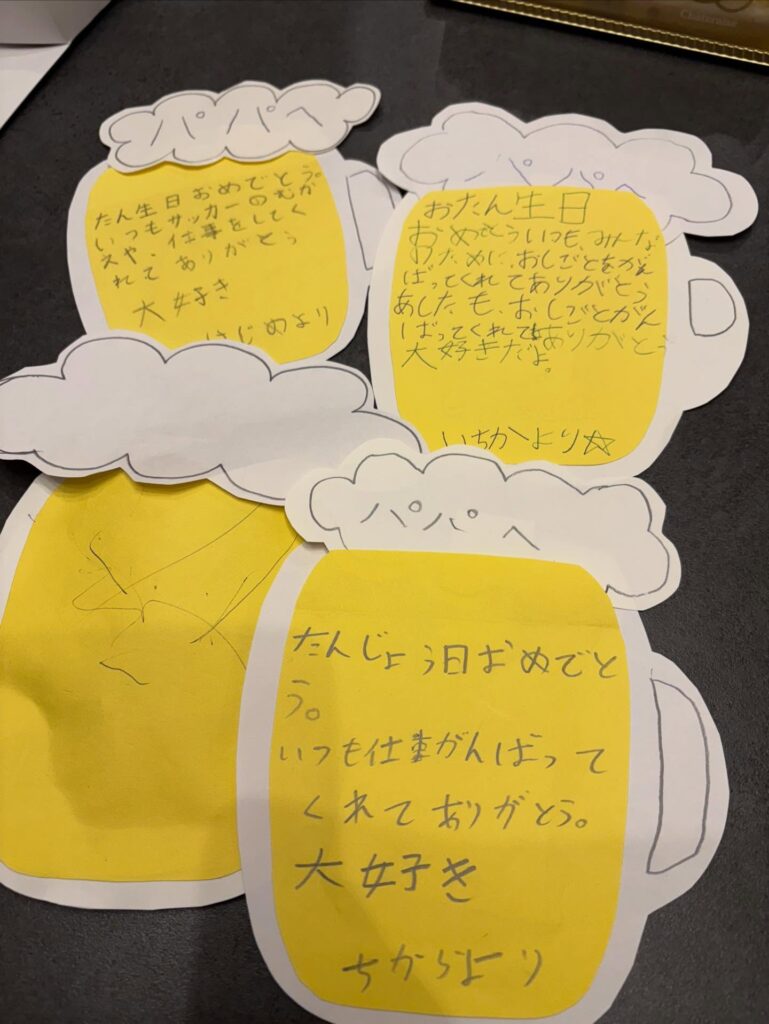 Châteraisé
パパへ
たん生日おめでとう。
いつもサッカーのむか
えや、仕事をしてく
れてありがとう
大好き
はじめより
パパへ
おたん生日
おめでとういつも、みんな
のために、おしごとをがん
ばってくれてありがとう
あしたも、おしごとがん
ばってくれてありがとう
大好きだよ。
いちかより☆
パパへ
たんじょう日おめでと
う。
いつも仕事がんばって
くれてありがとう。
大好き
ちからより